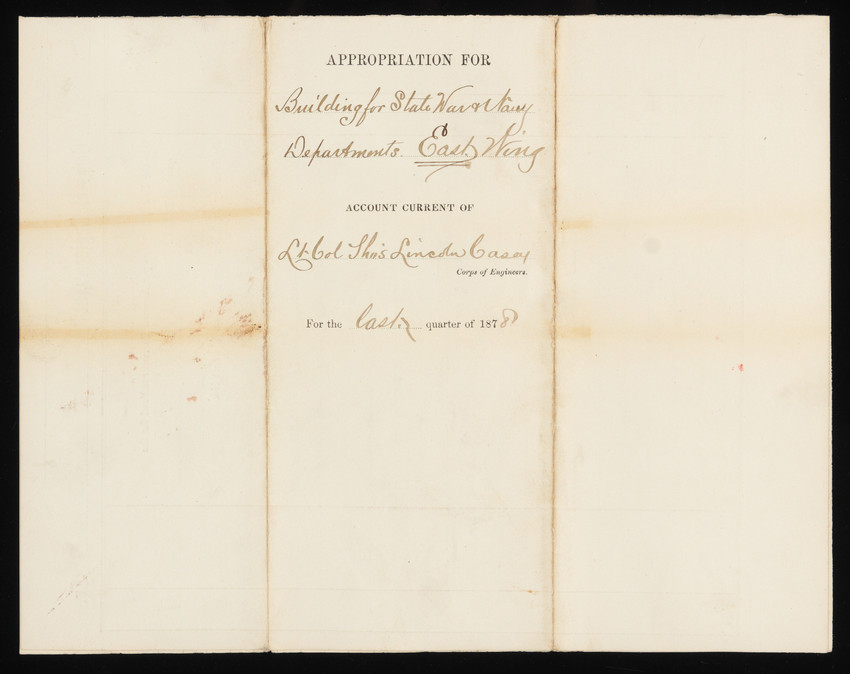 APPROPRIATION FOR
Building for State War & Navy
Departments. East Wing
ACCOUNT CURRENT OF
Lt Col Thos Lincoln Casey
Corps of Engineers.
For the last quarter of 1878